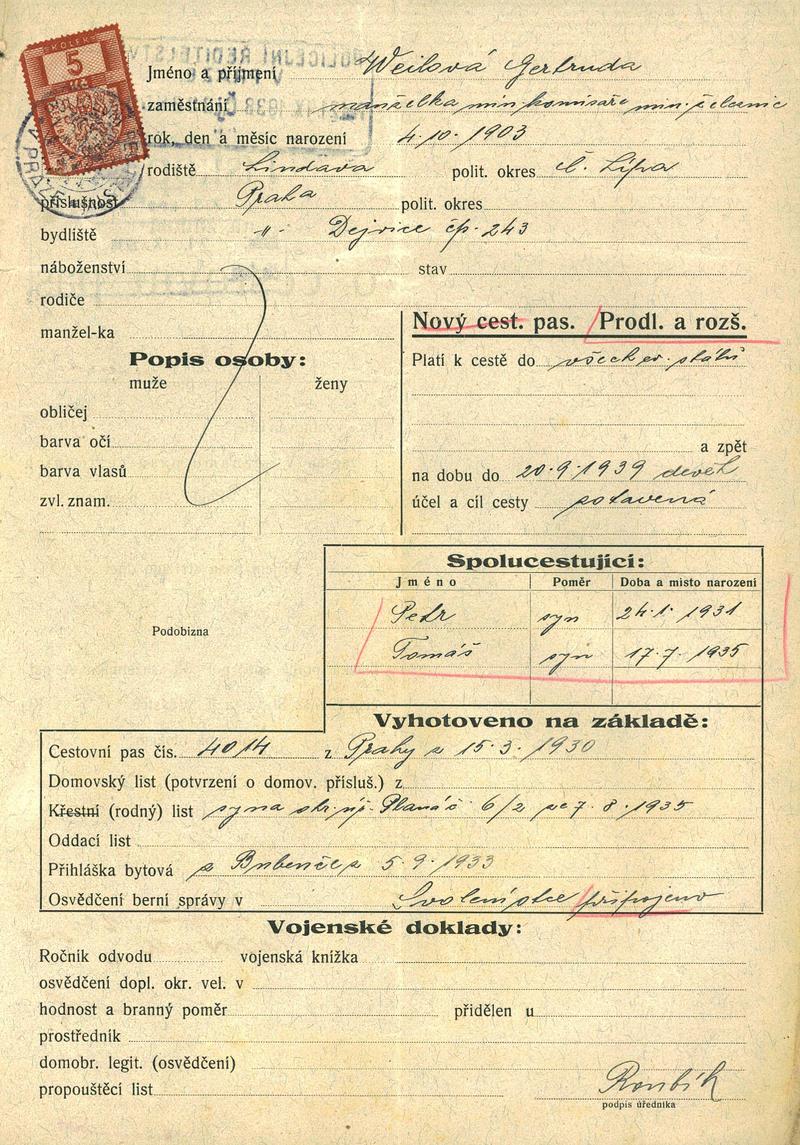 KOLEK
5
Kč
Jméno a příjmení Weilová Gertruda
zaměstnání manželka min. komisaře min. železnic
rok, den a měsíc narození 4. 10. 1903
rodiště Lindava polit. okres Č. Lípa
příslušnost Praha polit. okres
bydliště -"- Dejvice čp. 243
náboženství stav
rodiče
manžel-ka
Nový cest. pas. Prodl. a rozš.
Popis osoby:
muže ženy
obličej
barva očí
barva vlasů
zvl. znam.
Platí k cestě do všech ev. států
a zpět
na dobu do 20. 9. 1939
účel a cíl cesty
Spolucestující:
Jméno Poměr Doba a místo narození
Petr syn 24. 1. 1931
Tomáš syn 17. 7. 1935
Podobizna
Vyhotoveno na základě:
Cestovní pas čís. 4014 z Prahy z 15. 3. 1930
Domovský list (potvrzení o domov. přísluš.) z
Křestní (rodný) list syna 6/2 ze 7. 8. 1935
Oddací list
Přihláška bytová z Bubenče z 5. 9. 1933
Osvědčení berní správy v Svolení otce připojeno
Vojenské doklady:
Ročník odvodu vojenská knížka
osvědčení dopl. okr. vel. v
hodnost a branný poměr přidělen u
prostředník
domobr. legit. (osvědčení)
propouštěcí list
podpis úředníka